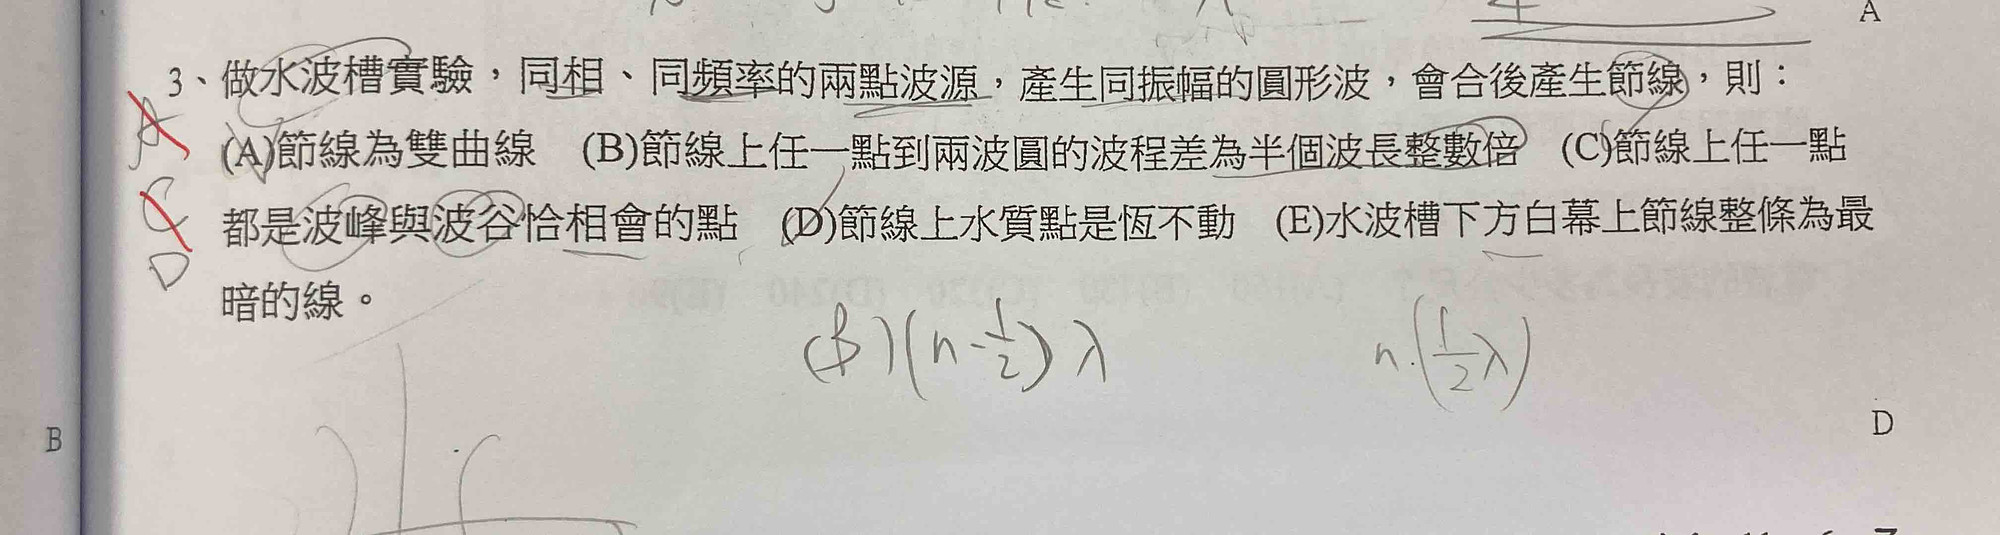 A
3、做水波槽實驗，同相、同頻率的兩點波源，產生同振幅的圓形波，會合後產生節線，則：
(A)節線為雙曲線 (B)節線上任一點到兩波圓的波程差為半個波長整數倍 (C)節線上任一點
都是波峰與波谷恰相會的點 (D)節線上水質點是恆不動 (E)水波槽下方白幕上節線整條為最
暗的線。
A
C
D
(B)(n-1/2)λ n·(1/2 λ)
B
D